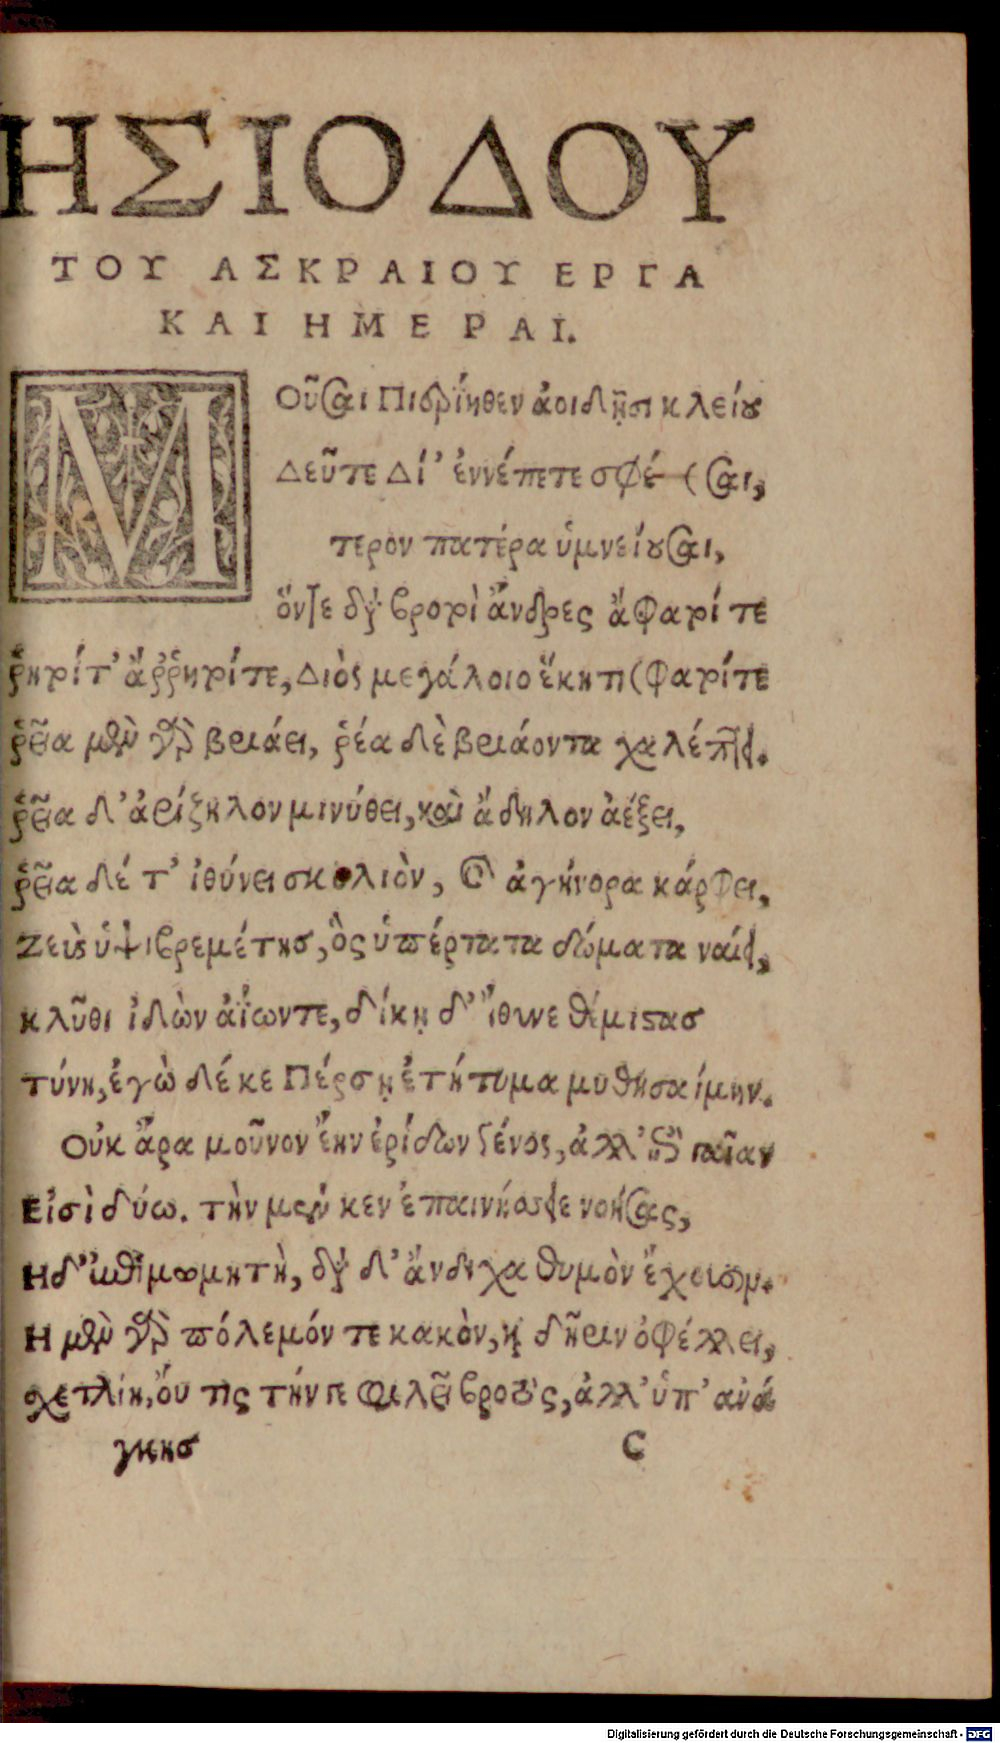 ΗΣΙΟΔΟΥ
ΤΟΥ ΑΣΚΡΑΙΟΥ ΕΡΓΑ
ΚΑΙ ΗΜΕΡΑΙ.
ΜΟῦσαι Πιερίηθεν ἀοιδῇσι κλείου
Δεῦτε Δί' ἐννέπετε σφέ (σαι,
τερον πατέρα ὑμνείουσαι,
ὅντε διὰ βροτοὶ ἄνδρες ἄφατοί τε
ῥητοί τ' ἄῤῥητοί τε, Διὸς μεγάλοιο ἕκητι (φατοί τε
ῥεῖα μὲν γὰρ βριάει, ῥέα δὲ βριάοντα χαλέπτει.
ῥεῖα δ' ἀρίζηλον μινύθει, καὶ ἄδηλον ἀέξει,
ῥεῖα δέ τ' ἰθύνει σκολιὸν, καὶ ἀγήνορα κάρφει,
Ζεὺς ὑψιβρεμέτης, ὃς ὑπέρτατα δώματα ναίει,
κλῦθι ἰδὼν ἀΐων τε, δίκῃ δ' ἴθυνε θέμιστας
τύνη, ἐγὼ δέ κε Πέρσῃ ἐτήτυμα μυθησαίμην.
Οὐκ ἄρα μοῦνον ἔην ἐρίδων γένος, ἀλλ' ἐπὶ γαῖαν
Εἰσὶ δύω. τὴν μέν κεν ἐπαινήσειε νοήσας,
Η δ' ἐπιμωμητὴ, διὰ δ' ἄνδιχα θυμὸν ἔχουσιν.
Η μὲν γὰρ πόλεμόν τε κακὸν, καὶ δῆριν ὀφέλλει,
σχετλίη, ὄυ τις τήν γε φιλεῖ βροτὸς, ἀλλ' ὑπ' ἀνά
γκης C
Digitalisierung gefördert durch die Deutsche Forschungsgemeinschaft - DFG